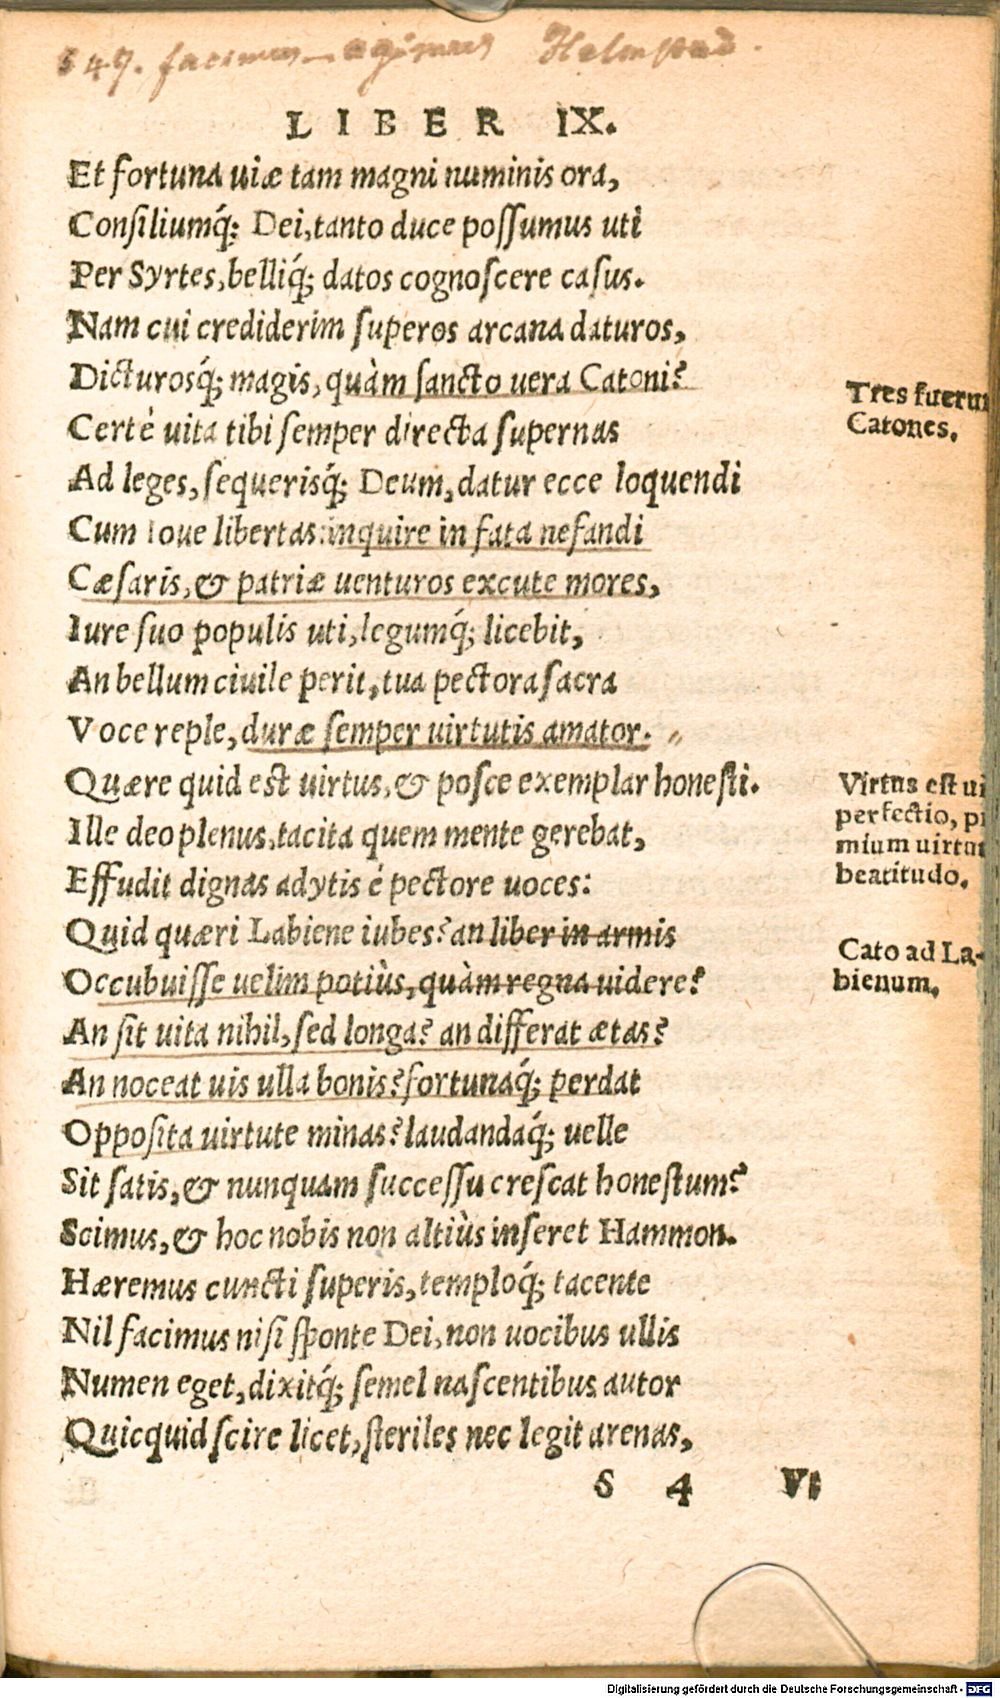 547. facimus – agimus Helmstad.
LIBER IX.
Et fortuna uiæ tam magni numinis ora,
Consiliumq́; Dei, tanto duce possumus uti
Per Syrtes, belliq́; datos cognoscere casus.
Nam cui crediderim superos arcana daturos,
Dicturosq́; magis, quàm sancto uera Catoni?
Certè uita tibi semper directa supernas
Ad leges, sequerisq́; Deum, datur ecce loquendi
Cum Ioue libertas: inquire in fata nefandi
Cæsaris, & patriæ uenturos excute mores,
Iure suo populis uti, legumq́; licebit,
An bellum ciuile perit, tua pectora sacra
Voce reple, duræ semper uirtutis amator.
Quære quid est uirtus, & posce exemplar honesti.
Ille deo plenus, tacita quem mente gerebat,
Effudit dignas adytis è pectore uoces:
Quid quæri Labiene iubes? an liber in armis
Occubuisse uelim potiùs, quàm regna uidere?
An sit uita nihil, sed longa? an differat ætas?
An noceat uis ulla bonis? fortunaq́; perdat
Opposita uirtute minas? laudandaq́; uelle
Sit satis, & nunquam successu crescat honestum?
Scimus, & hoc nobis non altiùs inseret Hammon.
Hæremus cuncti superis, temploq́; tacente
Nil facimus nisi sponte Dei, non uocibus ullis
Numen eget, dixitq́; semel nascentibus autor
Quicquid scire licet, steriles nec legit arenas,
S 4 Vt
Tres fuerun
Catones.
Virtus est ui
perfectio, pr
mium uirtut
beatitudo.
Cato ad La-
bienum.
Digitalisierung gefördert durch die Deutsche Forschungsgemeinschaft - DFG